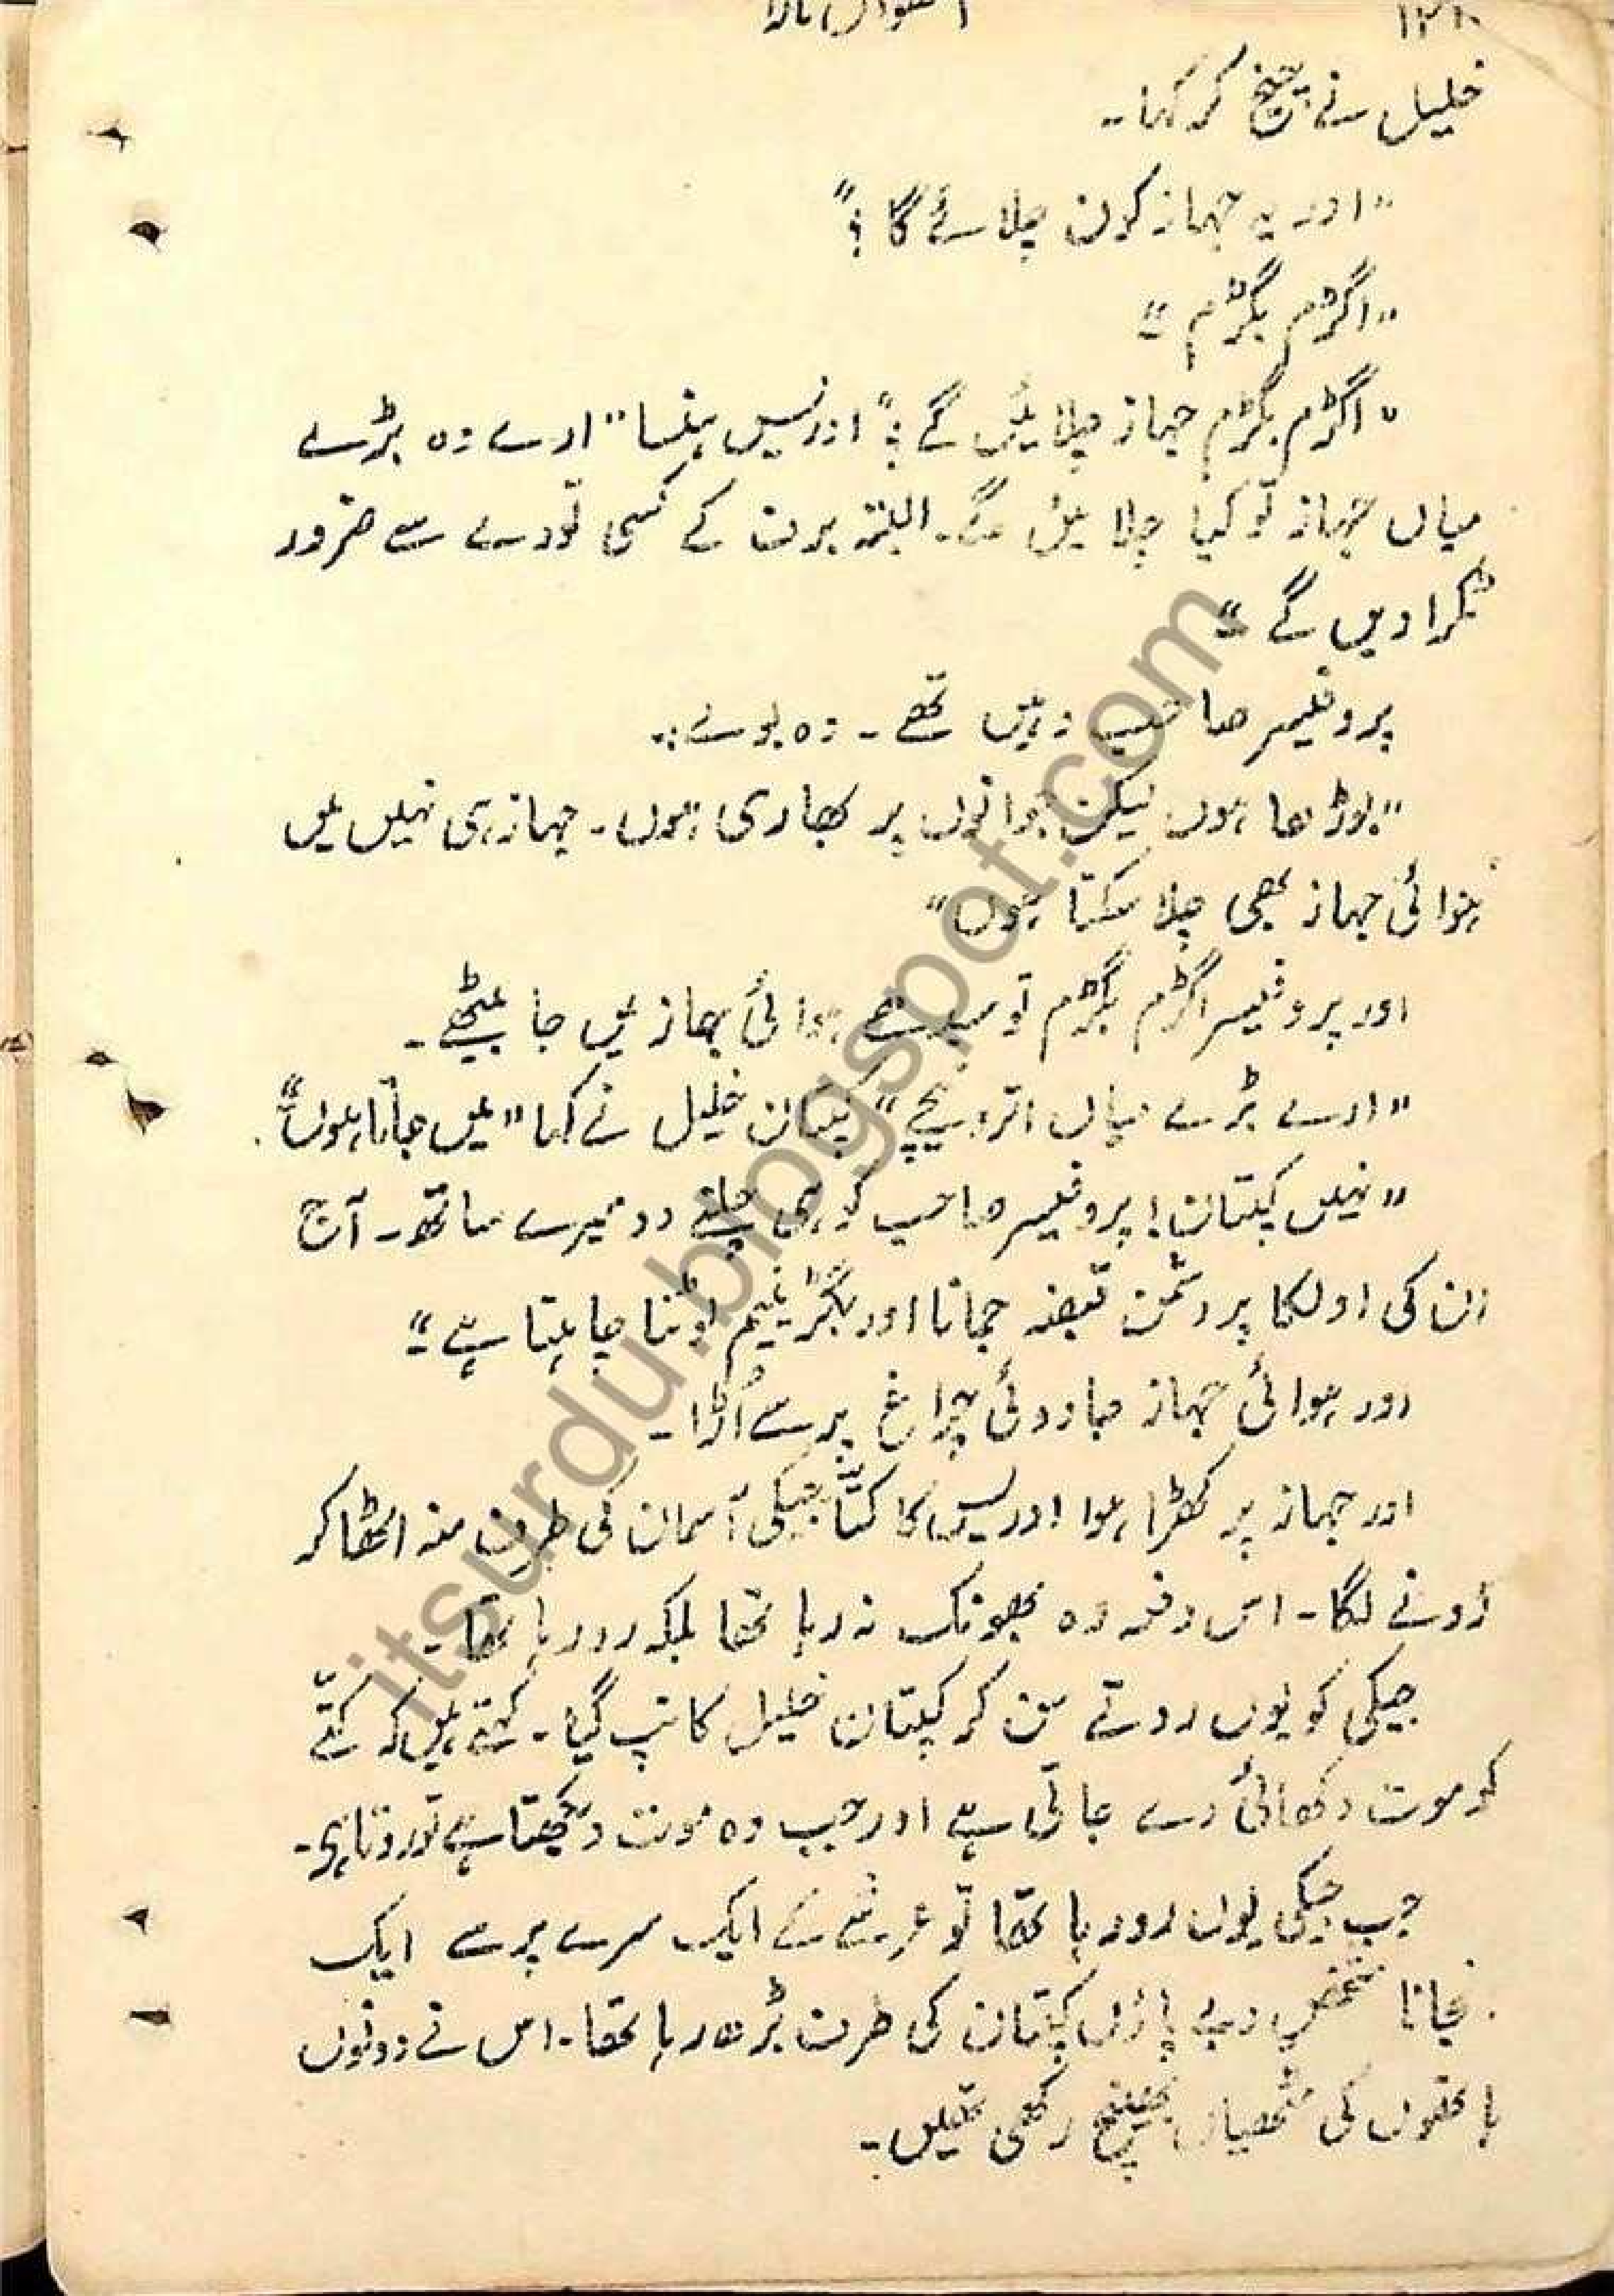 خلیل نے چیخ کر کہا۔
"اور یہ جہاز کون چلائے گا؟"
"اگڑم بگڑم"
"اگڑم بگڑم جہاز چلائیں گے؟" ادریس ہنسا "ارے وہ بڑے
میاں جہاز تو کیا چلائیں گے۔ البتہ برف کے کسی تودے سے ضرور
ٹکرا دیں گے"
پروفیسر صاحب وہیں تھے۔ وہ بولے:۔
"بوڑھا ہوں لیکن جوانوں پر بھاری ہوں۔ جہاز ہی نہیں میں
ہوائی جہاز بھی چلا سکتا ہوں"
اور پروفیسر اگڑم بگڑم تو سیدھے ہوائی جہاز میں جا بیٹھے۔
"ارے بڑے میاں اترو نیچے" کپتان خلیل نے کہا "میں جاتا ہوں"
"نہیں کپتان! پروفیسر صاحب کو ہی چلنے دو میرے ساتھ۔ آج
ان کی اولکا پر دشمن قبضہ جمانا اور بگڑینیم لوٹنا چاہتا ہے"
اور ہوائی جہاز جادوئی چراغ پر سے اُڑا۔
اور جہاز پر کھڑا ہوا ادریس کا کتّا جیکی آسمان کی طرف منہ اٹھا کر
رونے لگا۔ اس دفعہ وہ بھونک نہ رہا تھا بلکہ رو رہا تھا۔
جیکی کو یوں روتے سن کر کپتان خلیل کانپ گیا۔ کہتے ہیں کہ کتّے
کو موت دکھائی دے جاتی ہے اور جب وہ موت دیکھتا ہے تو روتا ہے۔
جب جیکی یوں رو رہا تھا تو عرشے کے ایک سرے پر سے ایک
انجانا شخص دبے پاؤں کپتان کی طرف بڑھ رہا تھا۔ اس نے دونوں
ہاتھوں کی مٹھیاں بھینچ رکھی تھیں۔
itsurdu.blogspot.com